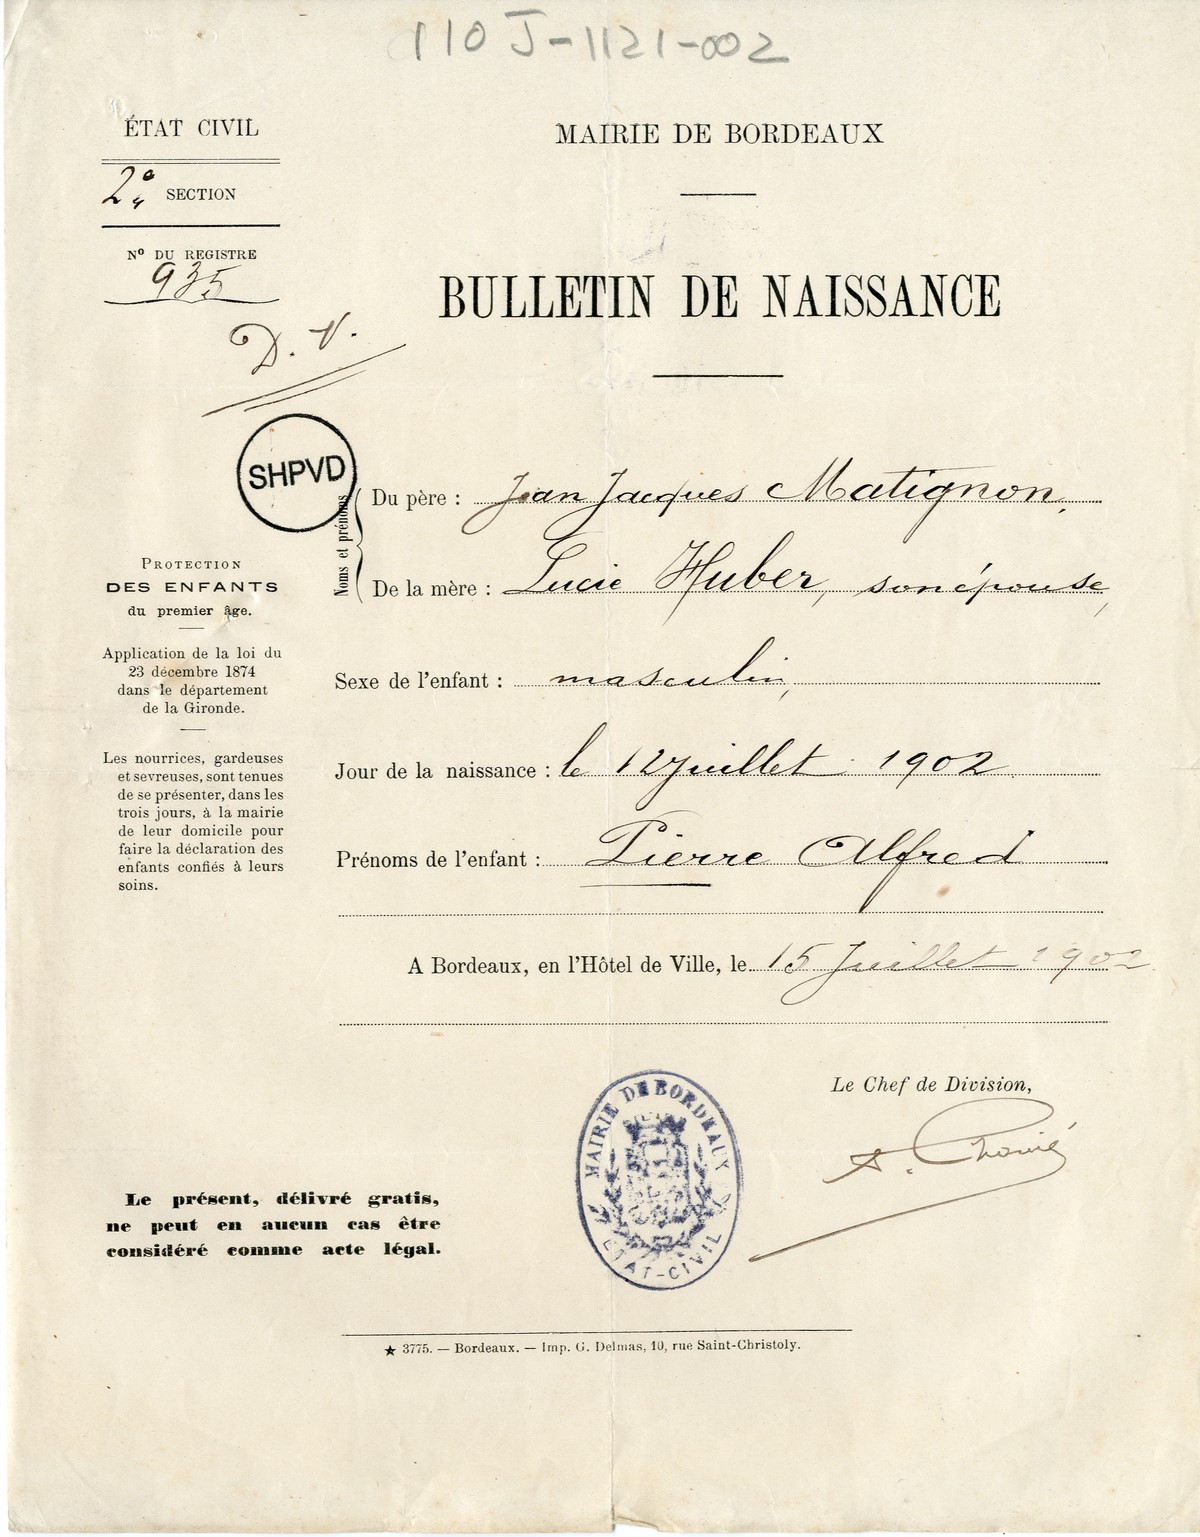 110 J-1121-002
ÉTAT CIVIL
2e SECTION
No DU REGISTRE
935
D. V.
MAIRIE DE BORDEAUX
BULLETIN DE NAISSANCE
SHPVD
Noms et prénoms
Du père : Jean Jacques Matignon,
De la mère : Lucie Huber, son épouse,
Sexe de l'enfant : masculin,
Jour de la naissance : le 12 juillet 1902
Prénoms de l'enfant : Pierre Alfred
A Bordeaux, en l'Hôtel de Ville, le 15 Juillet 1902
PROTECTION
DES ENFANTS
du premier âge.
Application de la loi du
23 décembre 1874
dans le département
de la Gironde.
Les nourrices, gardeuses
et sevreuses, sont tenues
de se présenter, dans les
trois jours, à la mairie
de leur domicile pour
faire la déclaration des
enfants confiés à leurs
soins.
Le Chef de Division,
MAIRIE DE BORDEAUX
ETAT-CIVIL
Le présent, délivré gratis,
ne peut en aucun cas être
considéré comme acte légal.
★ 3775. — Bordeaux. — Imp. G. Delmas, 10, rue Saint-Christoly.